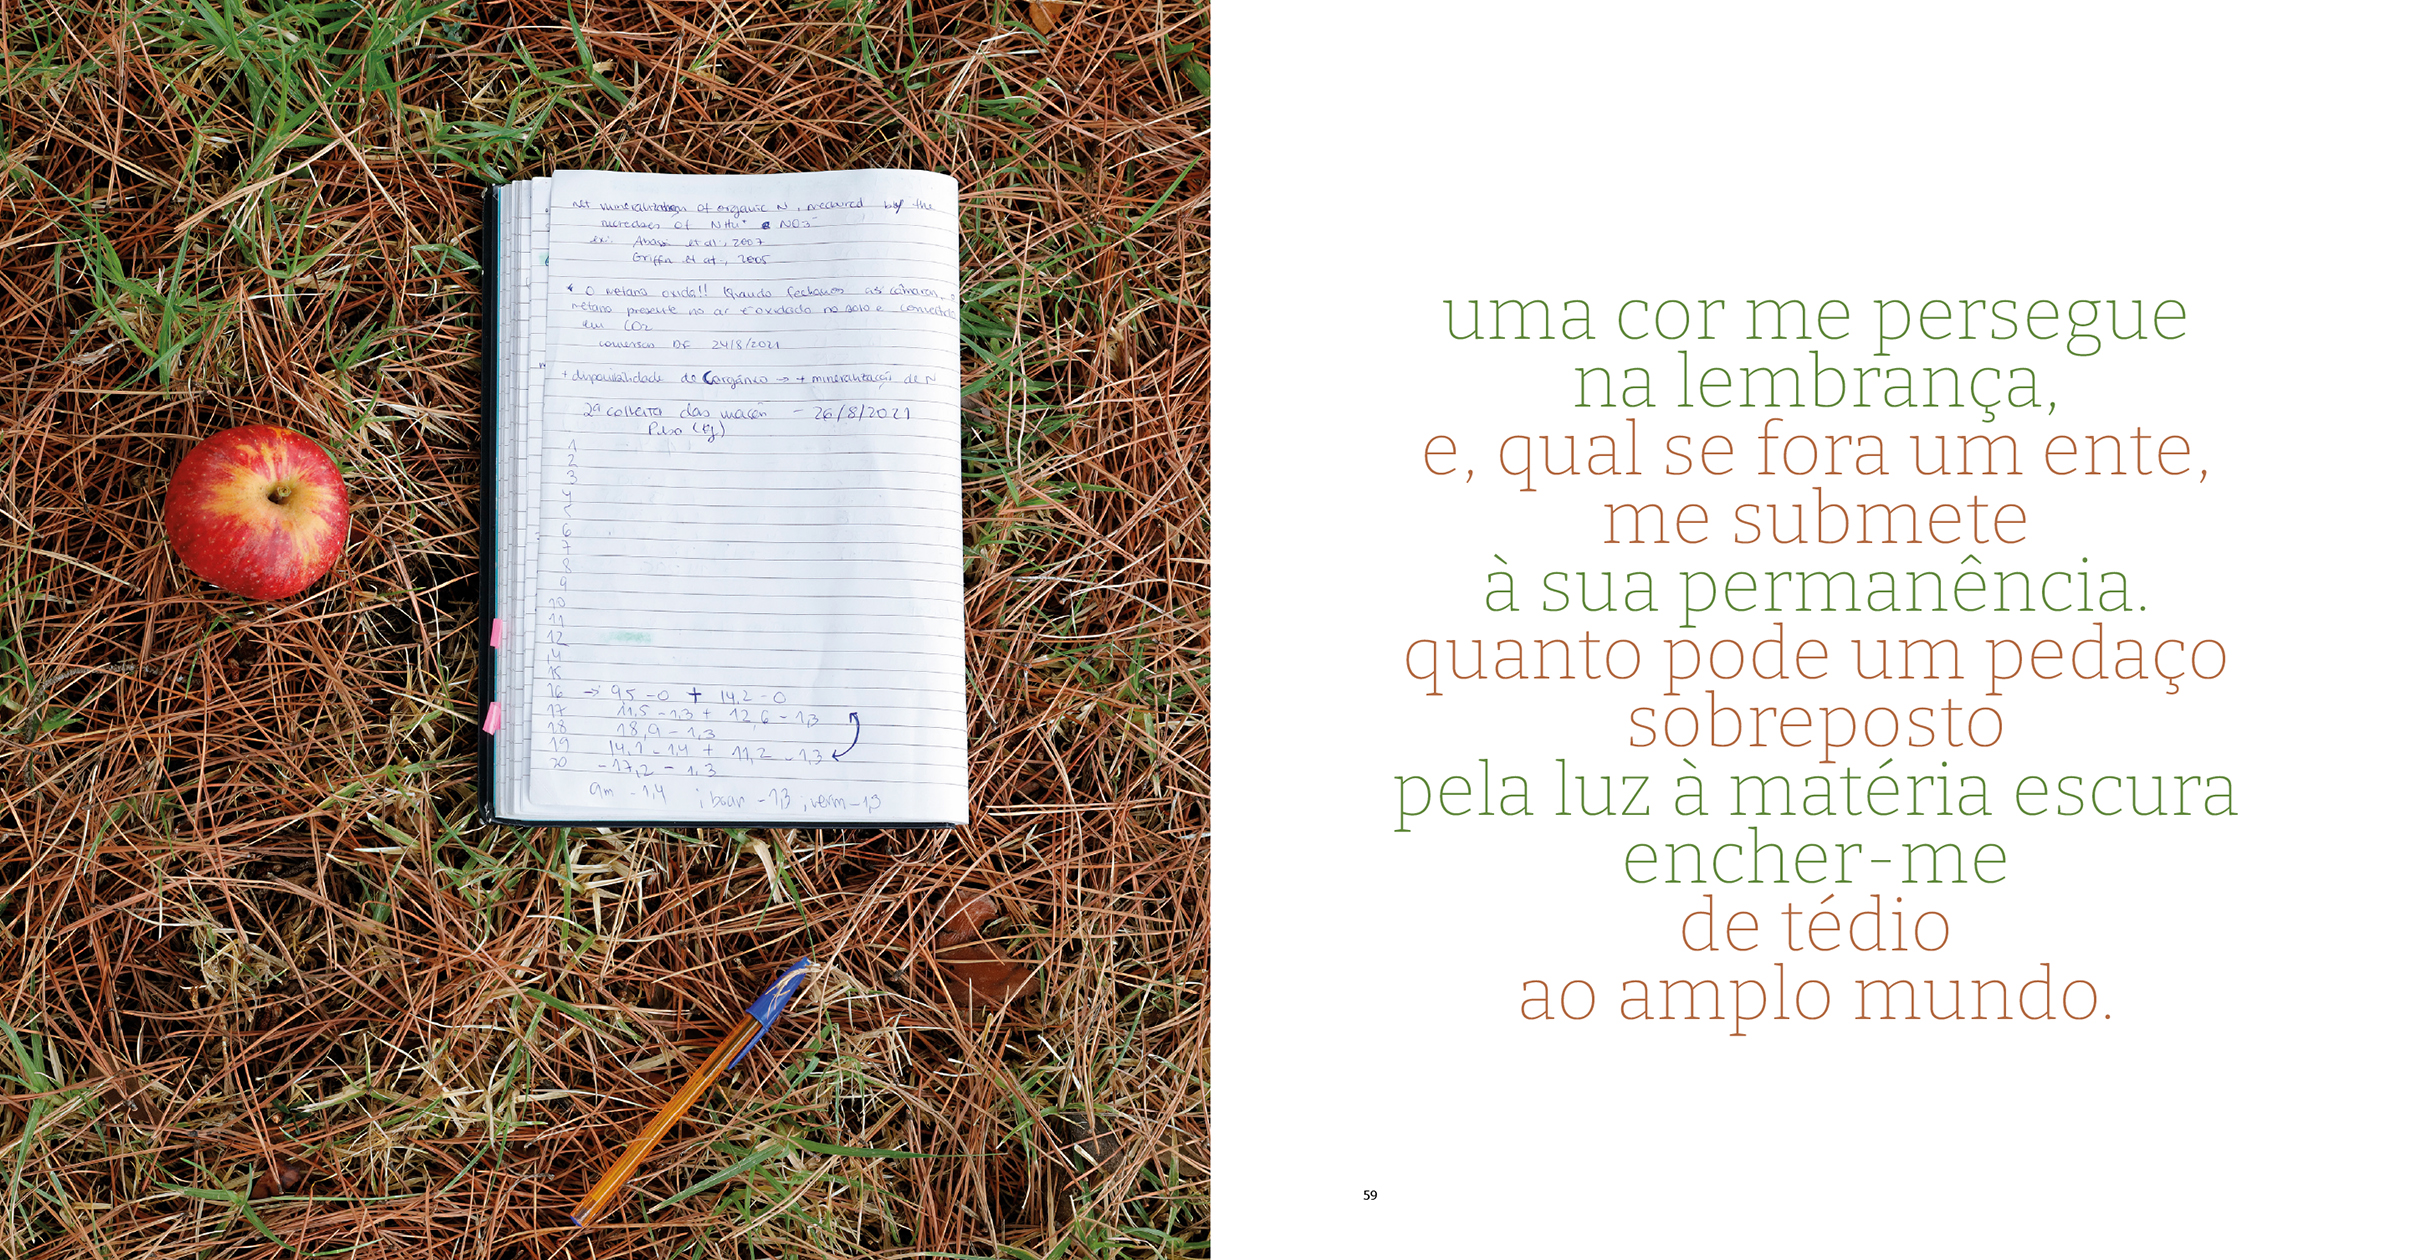 Net mineralization of organic N, measured by the
increases of NH4+ e NO3-
ex: Abassi et al., 2007
Griffin et al., 2005
* O metano oxida!! Quando fechamos as câmaras, o
metano presente no ar é oxidado no solo e convertido
em CO2
conversas DF 24/8/2021
+ disponibilidade de Corgânico → + mineralização de N
2ª colheita das maçãs - 26/8/2021
Peso (kg)
1
2
3
4
5
6
7
8
9
10
11
12
14
15
16 → 95 - 0 + 14,2 - 0
17 11,5 - 1,3 + 12,6 - 1,3
18 18,9 - 1,3
19 14,1 - 1,4 + 11,2 - 1,3
20 - 17,2 - 1,3
am - 1,4 ; bran - 1,3 ; verm - 1,3
uma cor me persegue
na lembrança,
e, qual se fora um ente,
me submete
à sua permanência.
quanto pode um pedaço
sobreposto
pela luz à matéria escura
encher-me
de tédio
ao amplo mundo.
59